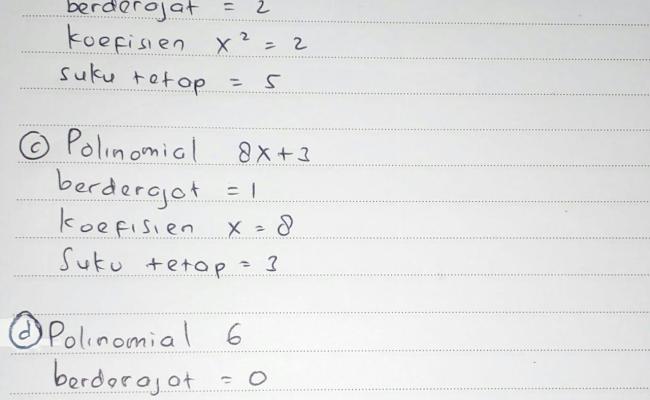 berderajat = 2
koefisien x² = 2
suku tetap = 5
ⓒ Polinomial 8x+3
berderajat = 1
koefisien x = 8
Suku tetap = 3
ⓓ Polinomial 6
berderajat = 0